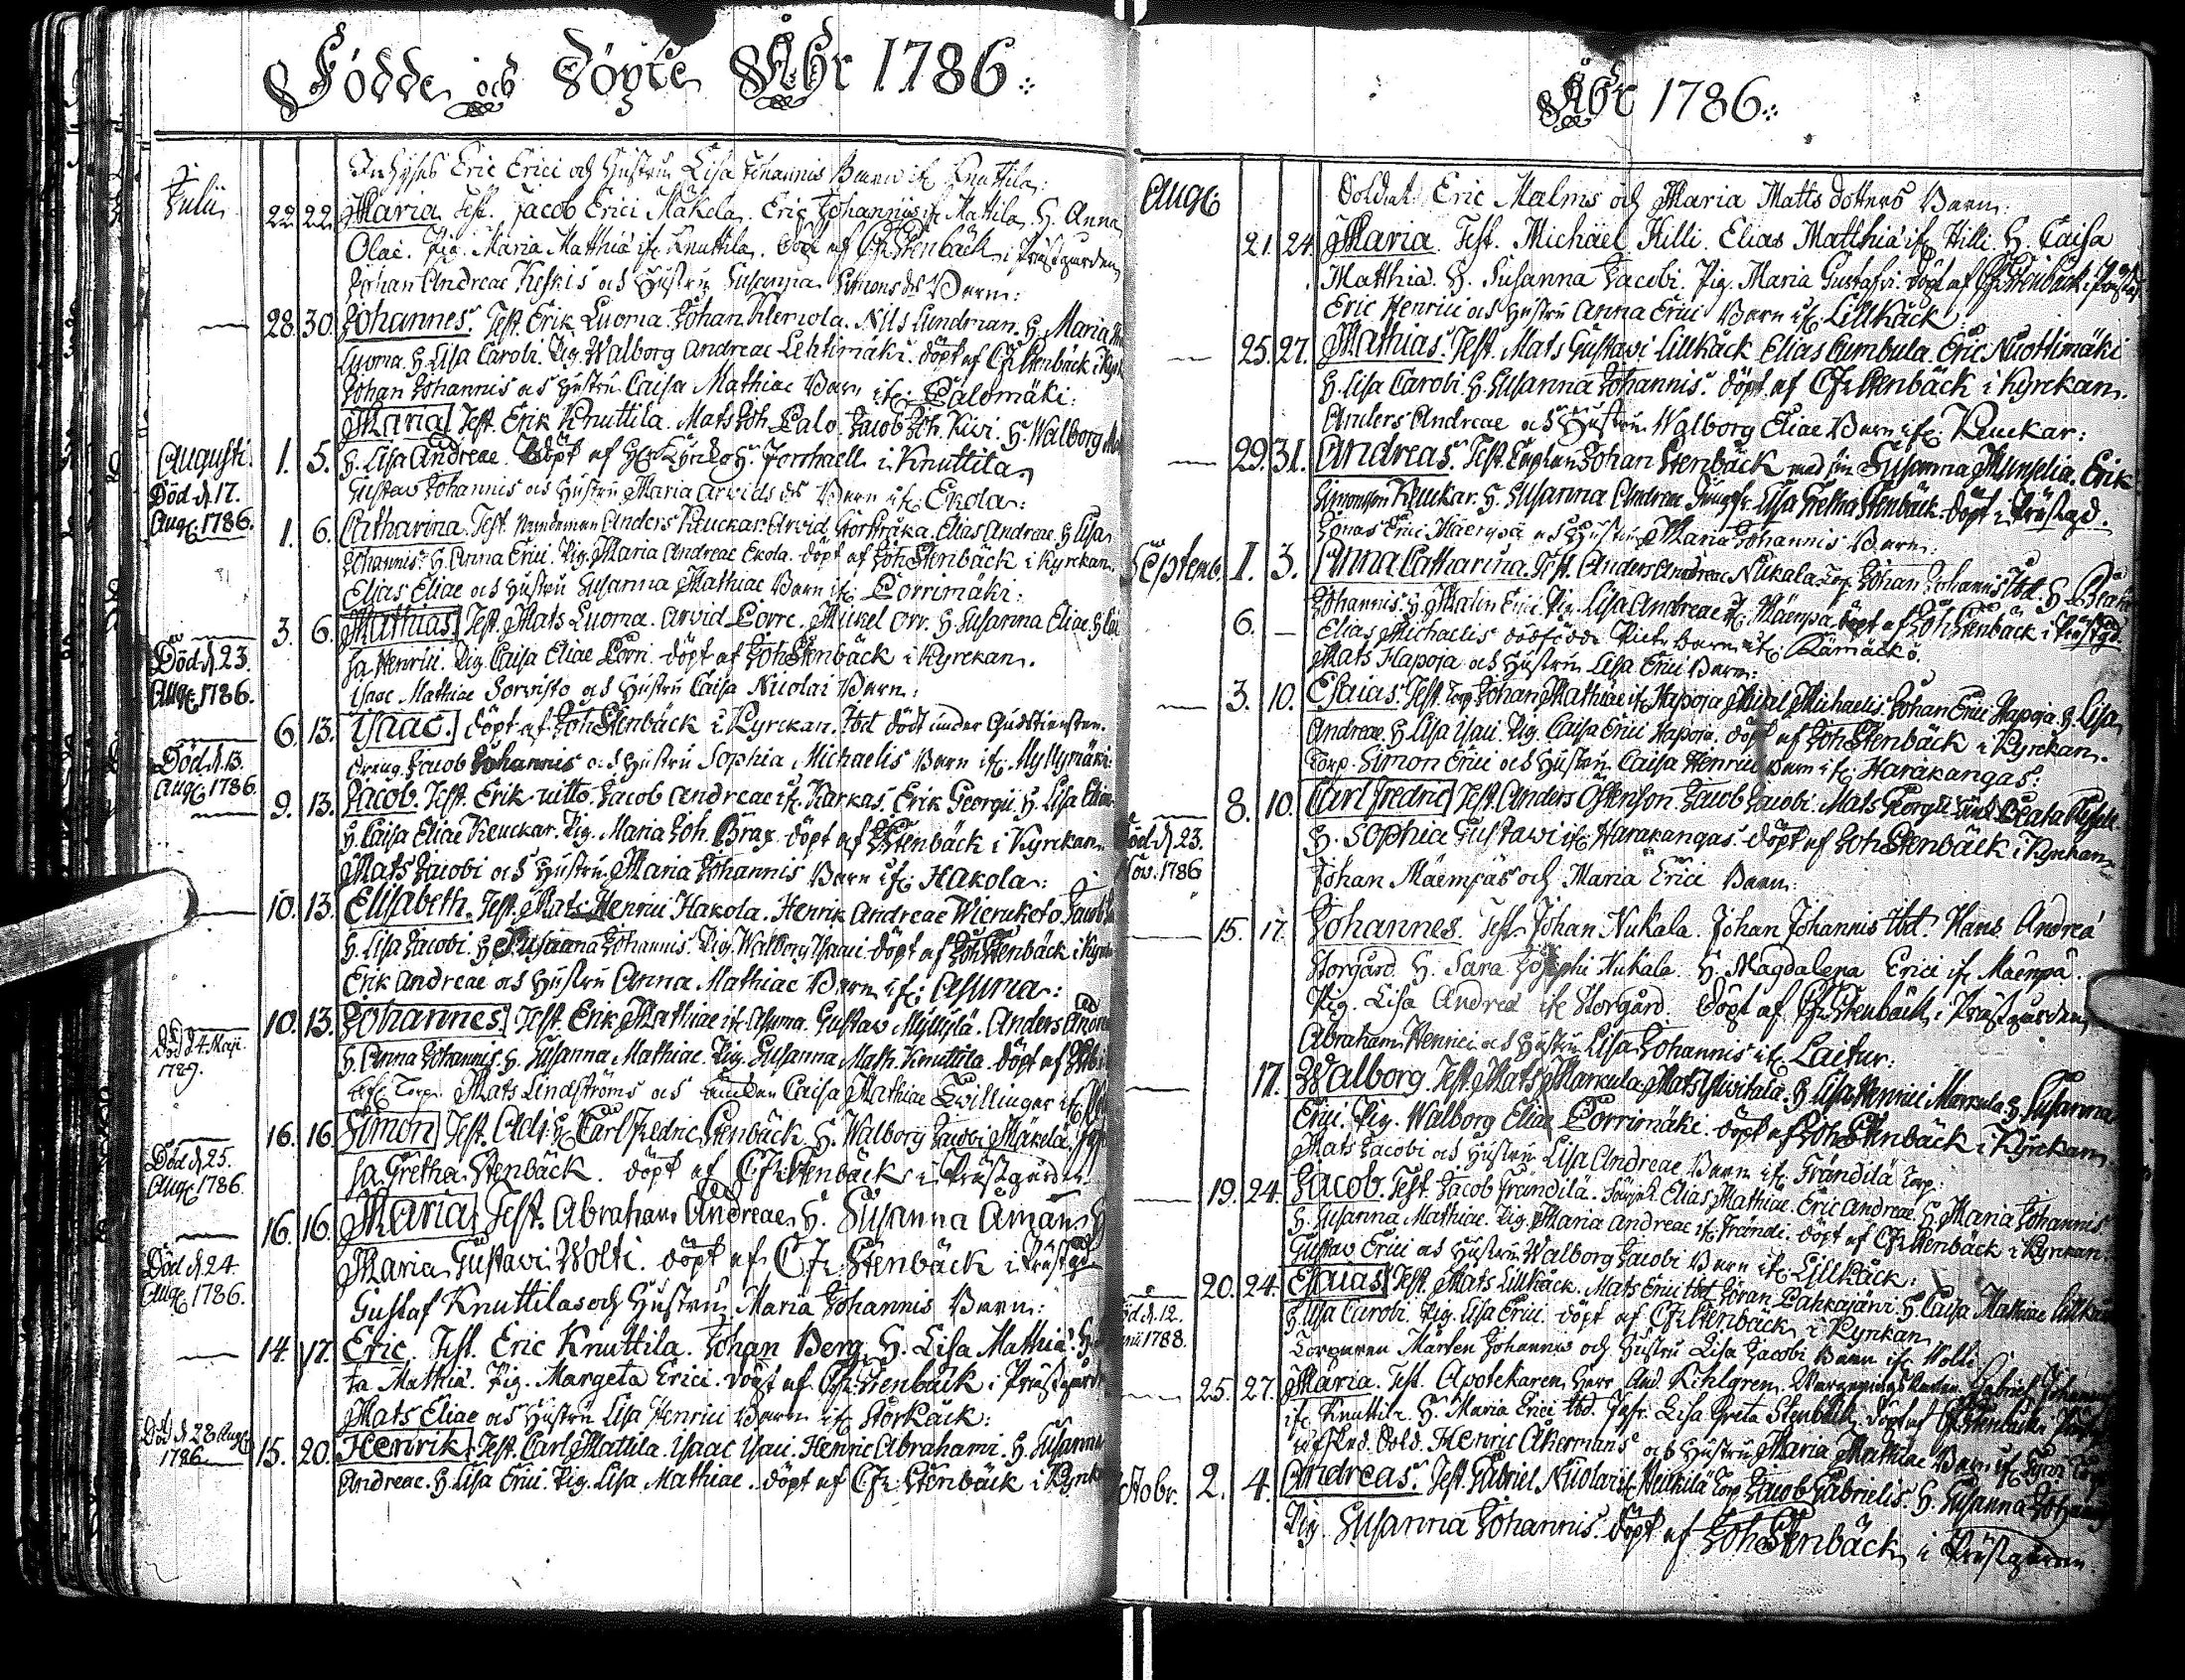 Födde och Döpte Åhr 1786.
Julii
Inhyses Eric Erici och Hustru Lisa Johannis Barn if. Knuttila:
22. 22. Maria Test. Jacob Erici Mäkela. Eric Johannis if. Mattila. H. Anna
Olae. Pig. Maria Matthiä if. Knuttila. döpt af CFr Stenbäck i Prästgården
Johan Andreae Keskis och Hustru Susanna Simons dr Barn:
28. 30. Johannes. Test. Erik Luoma. Johan Kleriola. Nils Lundman. H. Maria
Luoma. H. Lisa Caroli. Pig. Walborg Andreae Lehtimäki. döpt af CFr Stenbäck i
Johan Johannis och Hustru Caisa Mathiae Barn if. Palomäki:
Maria Test. Erik Knuttila. Mats Joh. Palo. Jacob Joh. Kivi. H. Walborg
Augusti. 1. 5. H. Lisa Andreae. döpt af i Knuttila
Död d. 17. Aug. 1786.
Gustav Johannis och Hustru Maria Arvids dr Barn if. Ekola:
1. 6. Catharina. Test. Nämdeman Anders Keuckar. Arvid Elias Andreae. H. Lisa
Johannis. H. Anna Erici. Pig. Maria Andreae Ekola. döpt af Joh Stenbäck i Kyrckan.
Elias Eliae och Hustru Susanna Mathiae Barn if. Porrimäki:
3. 6. Mathias Test. Mats Luoma. Arvid Porre. Mickel Orr. H. Susanna Eliae. H. Li
sa Henrici. Pig. Caisa Eliae Porri. döpt af Joh Stenbäck i Kyrckan.
Död d. 23. Aug. 1786.
Isaac Mathiae Sorvisto och Hustru Caisa Nicolai Barn:
6. 13. Isaac. döpt af Joh Stenbäck i Kyrckan. Ibd dödt under Gudstiensten.
Död d. 13. Aug. 1786.
Dreng. Jacob Johannis och Hustru Sophia Michaelis Barn if. Myllymäki:
9. 13. Jacob. Test. Erik Jacob Andreae if. Karkas. Erik Georgii. H. Lisa
H. Caisa Eliae Keuckar. Pig. Maria Joh. Brag. döpt af Stenbäck i Kyrckan
Mats Jacobi och Hustru Maria Johannis Barn if. Hakola:
10. 13. Elisabeth. Test. Mats Henrici Hakola. Henrik Andreae Wieruketo. Jacob
H. Lisa Jacobi. H. Susanna Johannis. Pig. Walborg Isaaci. döpt af Joh Stenbäck i
Erik Andreae och Hustru Anna Mathiae Barn if. Asuma:
10. 13. Johannes Test. Erik Mathiae if. Asuma. Gustav Myllylä. Anders
H. Anna Johannis. H. Susanna Mathiae. Pig. Susanna Math. Knuttila. döpt af
Död d 4. Maji 1789.
Torp. Mats Lindströms och Caisa Mathiae Twillingar if.
16. 16. Simon Test. Adj. H. Carl Fredric Stenbäck. H. Walborg Jacobi Mäkelä.
sa Gretha Stenbäck. döpt af CFr Stenbäck i Prästgården
Död d. 25. Aug. 1786.
16. 16. Maria Test. Abraham Andreae. H. Susanna Åman. H
Maria Gustavi Wolti. döpt af CFr Stenbäck i Prästgd
Död d. 24. Aug. 1786.
Gustaf Knuttilas och Hustru Maria Johannis Barn:
14. 17. Eric. Test. Eric Knuttila. Johan Berg. H. Lisa Mathiä. H.
ta Mathiä. Pig. Margeta Erici. döpt af CFr Stenbäck i Prästgård
Mats Eliae och Hustru Lisa Henrici Barn if. Storkäck:
15. 20. Henrik Test. Carl Mattila. Isaac Isaci. Henric Abrahami. H. Susanna
Andreae. H. Lisa Erici. Pig. Lisa Mathiae. döpt af CFr Stenbäck i
Död d 28 Aug. 1786
Åhr 1786.
Aug.
Soldat. Eric Malms och Maria Matts dotters Barn:
21. 24. Maria. Test. Michael Hilli. Elias Matthiä if. Hilli. H. Caisa
Matthiä. H. Susanna Jacobi. Pig. Maria Gustafvi. döpt af CFr Stenbäck i
Eric Henrici och Hustru Anna Erici Barn if. Lillkäck:
25. 27. Mathias. Test. Mats Gustavi Lillkäck. Elias Cumbula. Eric Nuottimäki
H. Lisa Caroli. H. Susanna Johannis. döpt af CFr Stenbäck i Kyrckan.
Anders Andreae och Hustru Walborg Eliae Barn if. Keuckar:
29. 31. Andreas. Test. Johan Stenbäck med sin Susanna Munselia. Erik
Simonsson Keuckar. H. Susanna Andreae. Jungfr. Lisa Gretha Stenbäck. döpt i Prästgd.
Jonas Erici Mäenpää och Hustru Maria Johannis Barn:
Septemb. 1. 3. Anna Catharina. Test. Anders Andreae Nukala. Torp. Johan Johannis Ibd. H. Beata
Johannis. H. Malin Erici. Pig. Lisa Andreae if. Mäenpä. döpt af Joh Stenbäck i Prästgd.
6. — Elias Michaelis dödfödde Barn if. Kämäckö.
Mats Hapoja och Hustru Lisa Erici Barn:
3. 10. Esaias. Test. Torp. Johan Mathiae if. Hapoja. Mikel Michaelis. Johan Erici Hapoja. H. Lisa
Andreae. H. Lisa Isaci. Pig. Caisa Erici Hapoja. döpt af Joh Stenbäck i Kyrckan.
Torp. Simon Erici och Hustru Caisa Henrici Barn if. Harakangas:
8. 10. Carl Fredric Test. Anders Östenson. Jacob Jacobi. Mats Georgii. Beata
H. Sophia Gustawi if. Harakangas. döpt af Joh Stenbäck i Kyrckan
Död d. 23. Nov. 1786
Johan Mäenpäs och Maria Erici Barn:
15. 17. Johannes. Test. Johan Nukala. Johan Johannis Ibd. Hans Andreä
Storgård. H. Sara Josephi Nukala. H. Magdalena Erici if. Mäenpä.
Pig. Lisa Andreä if. Storgård. döpt af CFr Stenbäck i Prästgården
Abraham Henrici och Hustru Lisa Johannis if. Laitur:
17. Walborg. Test. Mats Markula. Mats H. Lisa Henrici Markula. H. Susanna
Erici. Pig. Walborg Eliae Porrimäki. döpt af Joh Stenbäck i Kyrckan
Mats Jacobi och Hustru Lisa Andreae Barn if. Frändilä Torp:
19. 24. Jacob. Test. Jacob Frändilä. Elias Mathiae. Eric Andreae. H. Maria Johannis.
H. Susanna Mathiae. Pig. Maria Andreae if. Frändi. döpt af CFr Stenbäck i Kyrckan.
Gustav Erici och Hustru Walborg Jacobi Barn if. Lillkäck:
20. 24. Esaias Test. Mats Lillkäck. Mats Erici Ibd. Göran Pahkajärvi. H. Caisa Mathiae
H. Lisa Caroli. Pig. Lisa Erici. döpt af CFr Stenbäck i Kyrckan
d. 12. 1788.
Torparen Mårten Johannis och Hustru Lisa Jacobi Barn if. Wolti:
25. 27. Maria. Test. Apotekaren Herr And. Kihlgren. Gabriel
if. Knuttila. H. Maria Erici Ibd. Jgfr. Lisa Greta Stenbäck. döpt af CFr Stenbäck i
afsked. Sold. Henric Åkermans och Hustru Maria Mathiae Barn if.
Octobr. 2. 4. Andreas. Test. Gabriel Nicolai if. Heickilä Torp. Jacob Gabrielis. H. Susanna
Pig. Susanna Johannis. döpt af Joh Stenbäck i Prästgården.